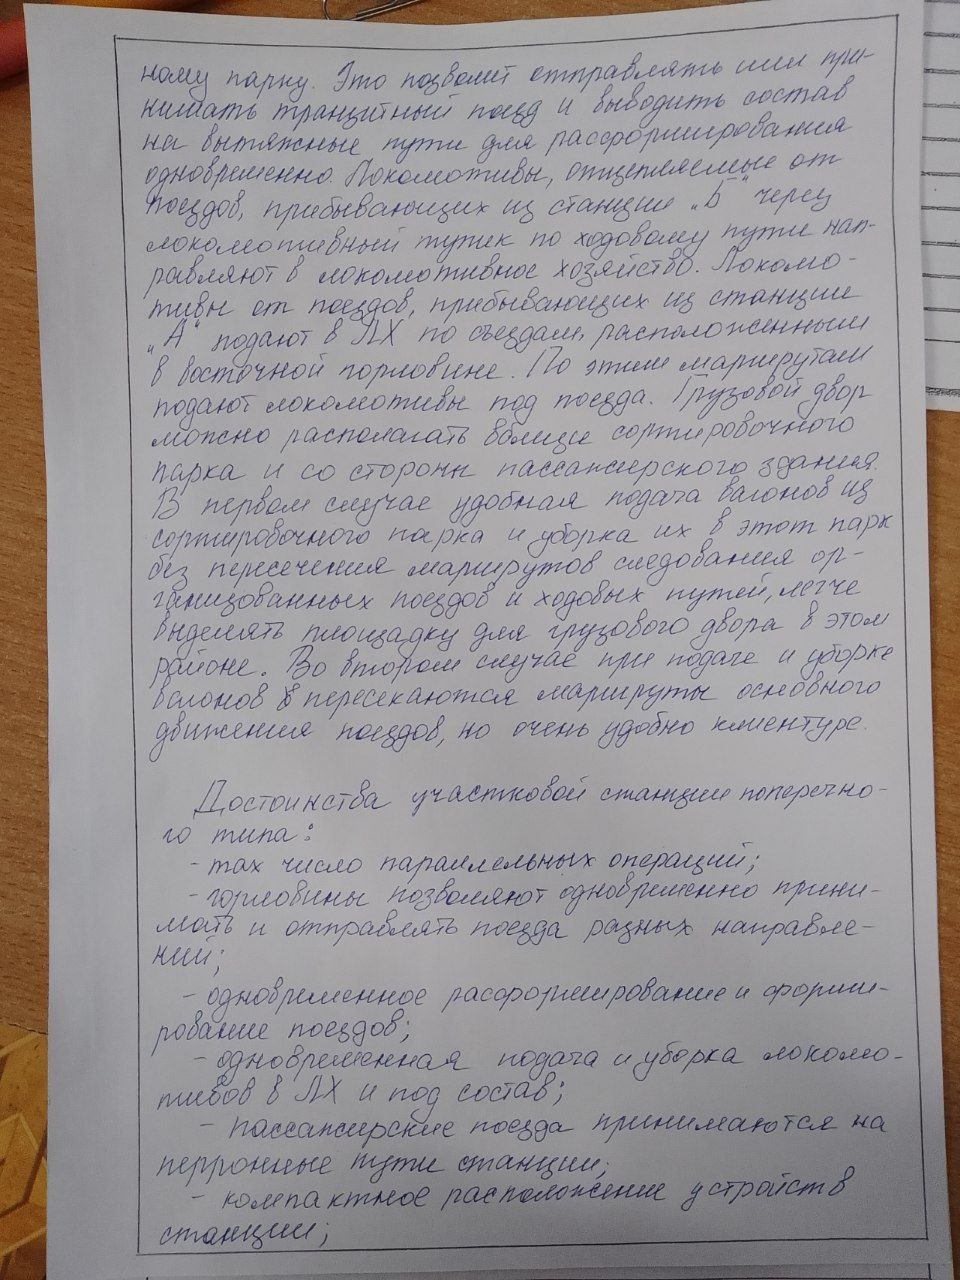 ному парку. Это позволит отправлять или при-
нимать транзитный поезд и выводить состав
на вытяжные пути для расформирования
одновременно. Локомотивы, отцепляемые от
поездов, прибывающих из станции „Б“ через
локомотивный тупик по ходовому пути нап-
равляют в локомотивное хозяйство. Локомо-
тивы от поездов, прибывающих из станции
„А“ подают в ЛХ по съездам, расположенным
в восточной горловине. По этим маршрутам
подают локомотивы под поезда. Грузовой двор
можно располагать вблизи сортировочного
парка и со стороны пассажирского здания.
В первом случае удобная подача вагонов из
сортировочного парка и уборка их в этот парк
без пересечения маршрутов следования ор-
ганизованных поездов и ходовых путей, легче
выделять площадку для грузового двора в этом
районе. Во втором случае при подаче и уборке
вагонов пересекаются маршруты основного
движения поездов, но очень удобно клиентуре.
Достоинства участковой станции поперечно-
го типа:
- max число параллельных операций;
- горловины позволяют одновременно прини-
мать и отправлять поезда разных направле-
ний;
- одновременное расформирование и форми-
рование поездов;
- одновременная подача и уборка локомо-
тивов в ЛХ и под состав;
- пассажирские поезда принимаются на
перронные пути станции;
- компактное расположение устройств
станции;